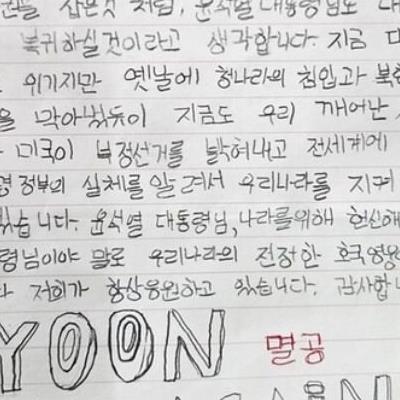 삼은것 처럼, 윤석열 대통령님도
복귀하실것이라고 생각합니다. 지금
위기지만 옛날에 청나라의 침입과
막아냈듯이 지금도 우리 깨어난
미국이 부정선거를 밝혀내고 전세계에
정부의 실체를 알려서 우리나라를 지켜
있습니다. 윤석열 대통령님, 나라를위해 헌신해
령님이야 말로 우리나라의 진정한 호국영웅
저희가 항상응원하고 있습니다. 감사합니
YOON 멸공